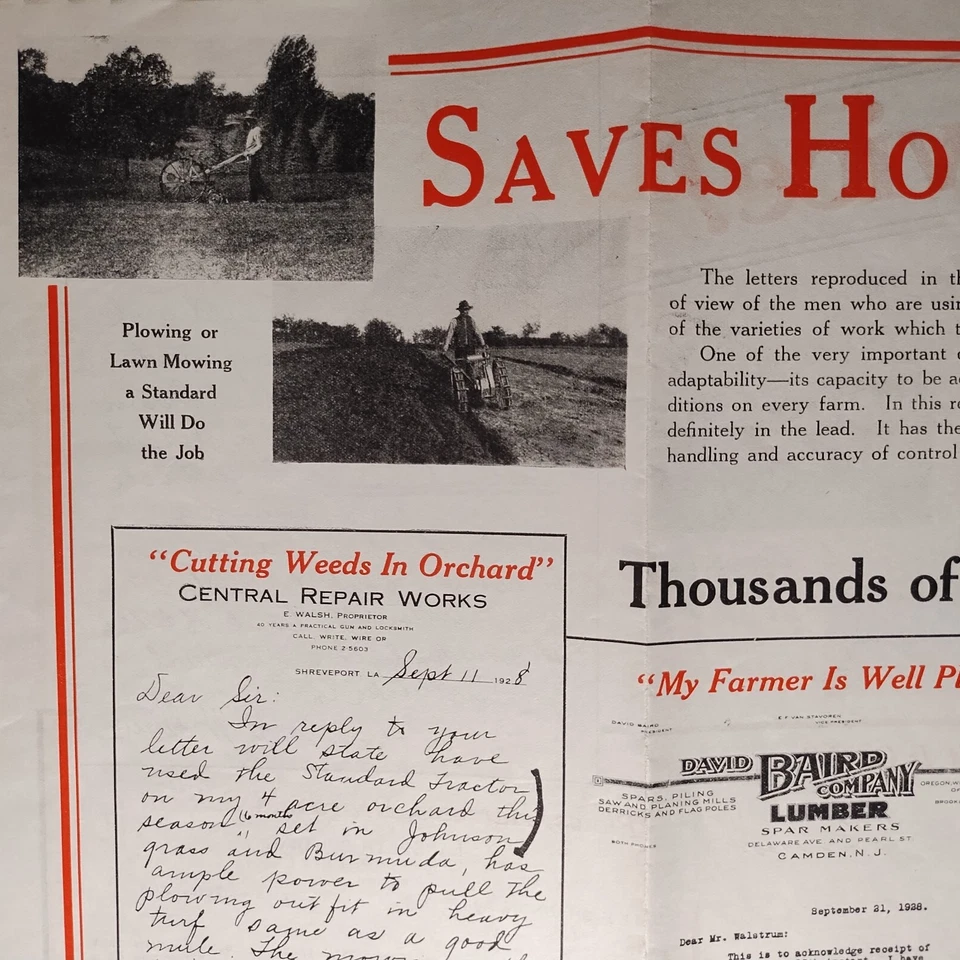 SAVES HO
The letters reproduced in th
of view of the men who are usin
of the varieties of work which t
One of the very important
adaptability—its capacity to be a
ditions on every farm. In this r
definitely in the lead. It has the
handling and accuracy of control
Plowing or
Lawn Mowing
a Standard
Will Do
the Job
"Cutting Weeds In Orchard"
CENTRAL REPAIR WORKS
E. WALSH, PROPRIETOR
40 YEARS A PRACTICAL GUN AND LOCKSMITH
CALL, WRITE, WIRE OR
PHONE 2-5603
SHREVEPORT, LA Sept 11 1928
Dear Sir:
In reply to your
letter will state have
used the Standard Tractor
on my 4 acre orchard this
season (6 months) set in Johnson
grass and Burmuda, has
ample power to pull the
plowing outfit in heavy
turf same as a good
mule. The mow
Thousands of
"My Farmer Is Well Pl
DAVID BAIRD
PRESIDENT
E F VAN STAVOREN
VICE PRESIDENT
DAVID BAIRD
COMPANY
LUMBER
SPAR MAKERS
DELAWARE AVE AND PEARL ST
CAMDEN, N. J.
SPARS, PILING
SAW AND PLANING MILLS
DERRICKS AND FLAG POLES
BOTH PHONES
OREGON, W
BROOK
September 21, 1928.
Dear Mr. Walstrum:
This is to acknowledge receipt of
I have